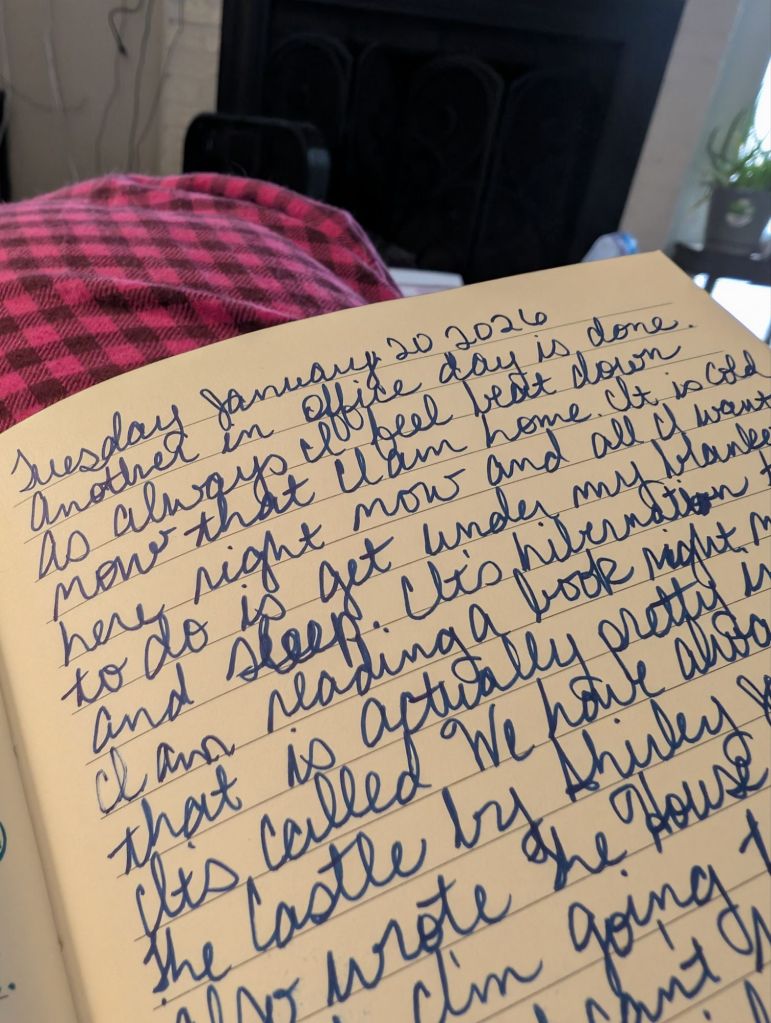 Tuesday January 20 2026
Another in office day is done.
As always I feel beat down
now that I am home. It is cold
here right now and all I want
to do is get under my blanket
and sleep. It's hibernation
I am reading a book right
that is actually pretty
It's called We have
The Castle by Shirley
also wrote The House
I'm going
can't